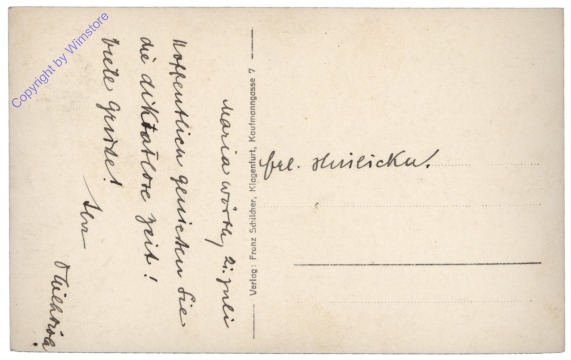 Maria Wörth, 2. Juli
Hoffentlich genießen Sie
die diktatlose Zeit!
Viele Grüße!
Ihr
Frl.
Verlag: Franz Schildner, Klagenfurt, Kaufmanngasse 7
Copyright by Wimstore